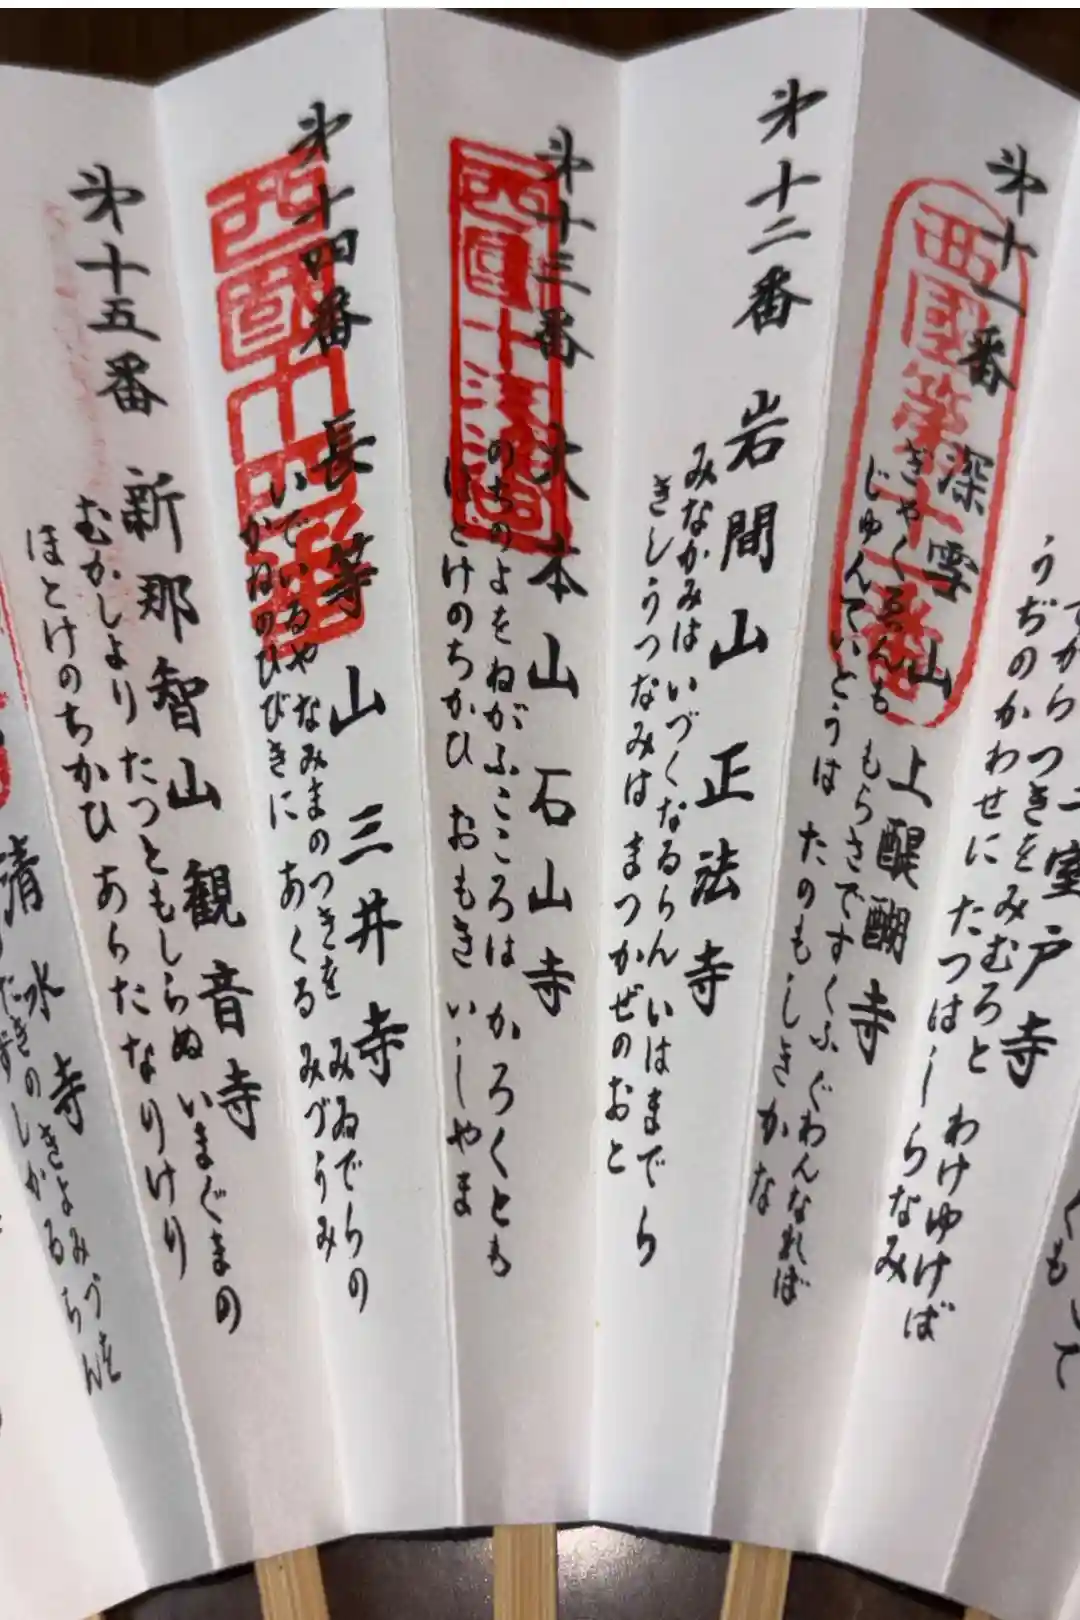 うぢのかわせに たつはしらなみ
第十一番 深雪山 上醍醐寺
ぎゃくえんも もらさですくふ ぐわんなれば
じゅんていどうは たのもしきかな
西國第十一番
第十二番 岩間山 正法寺
みなかみは いづくなるらん いはまでら
きしうつなみは まつかぜのおと
第十三番 大本山 石山寺
のちのよを ねがふこころは かろくとも
ほとけのちかひ おもき いしやま
西國十三番
第十四番 長等山 三井寺
いでいるや なみまのつきを みゐでらの
かねのひびきに あくる みづうみ
西國十四番
第十五番 新那智山 観音寺
むかしより たつともしらぬ いまぐまの
ほとけのちかひ あらたなりけり
清水寺